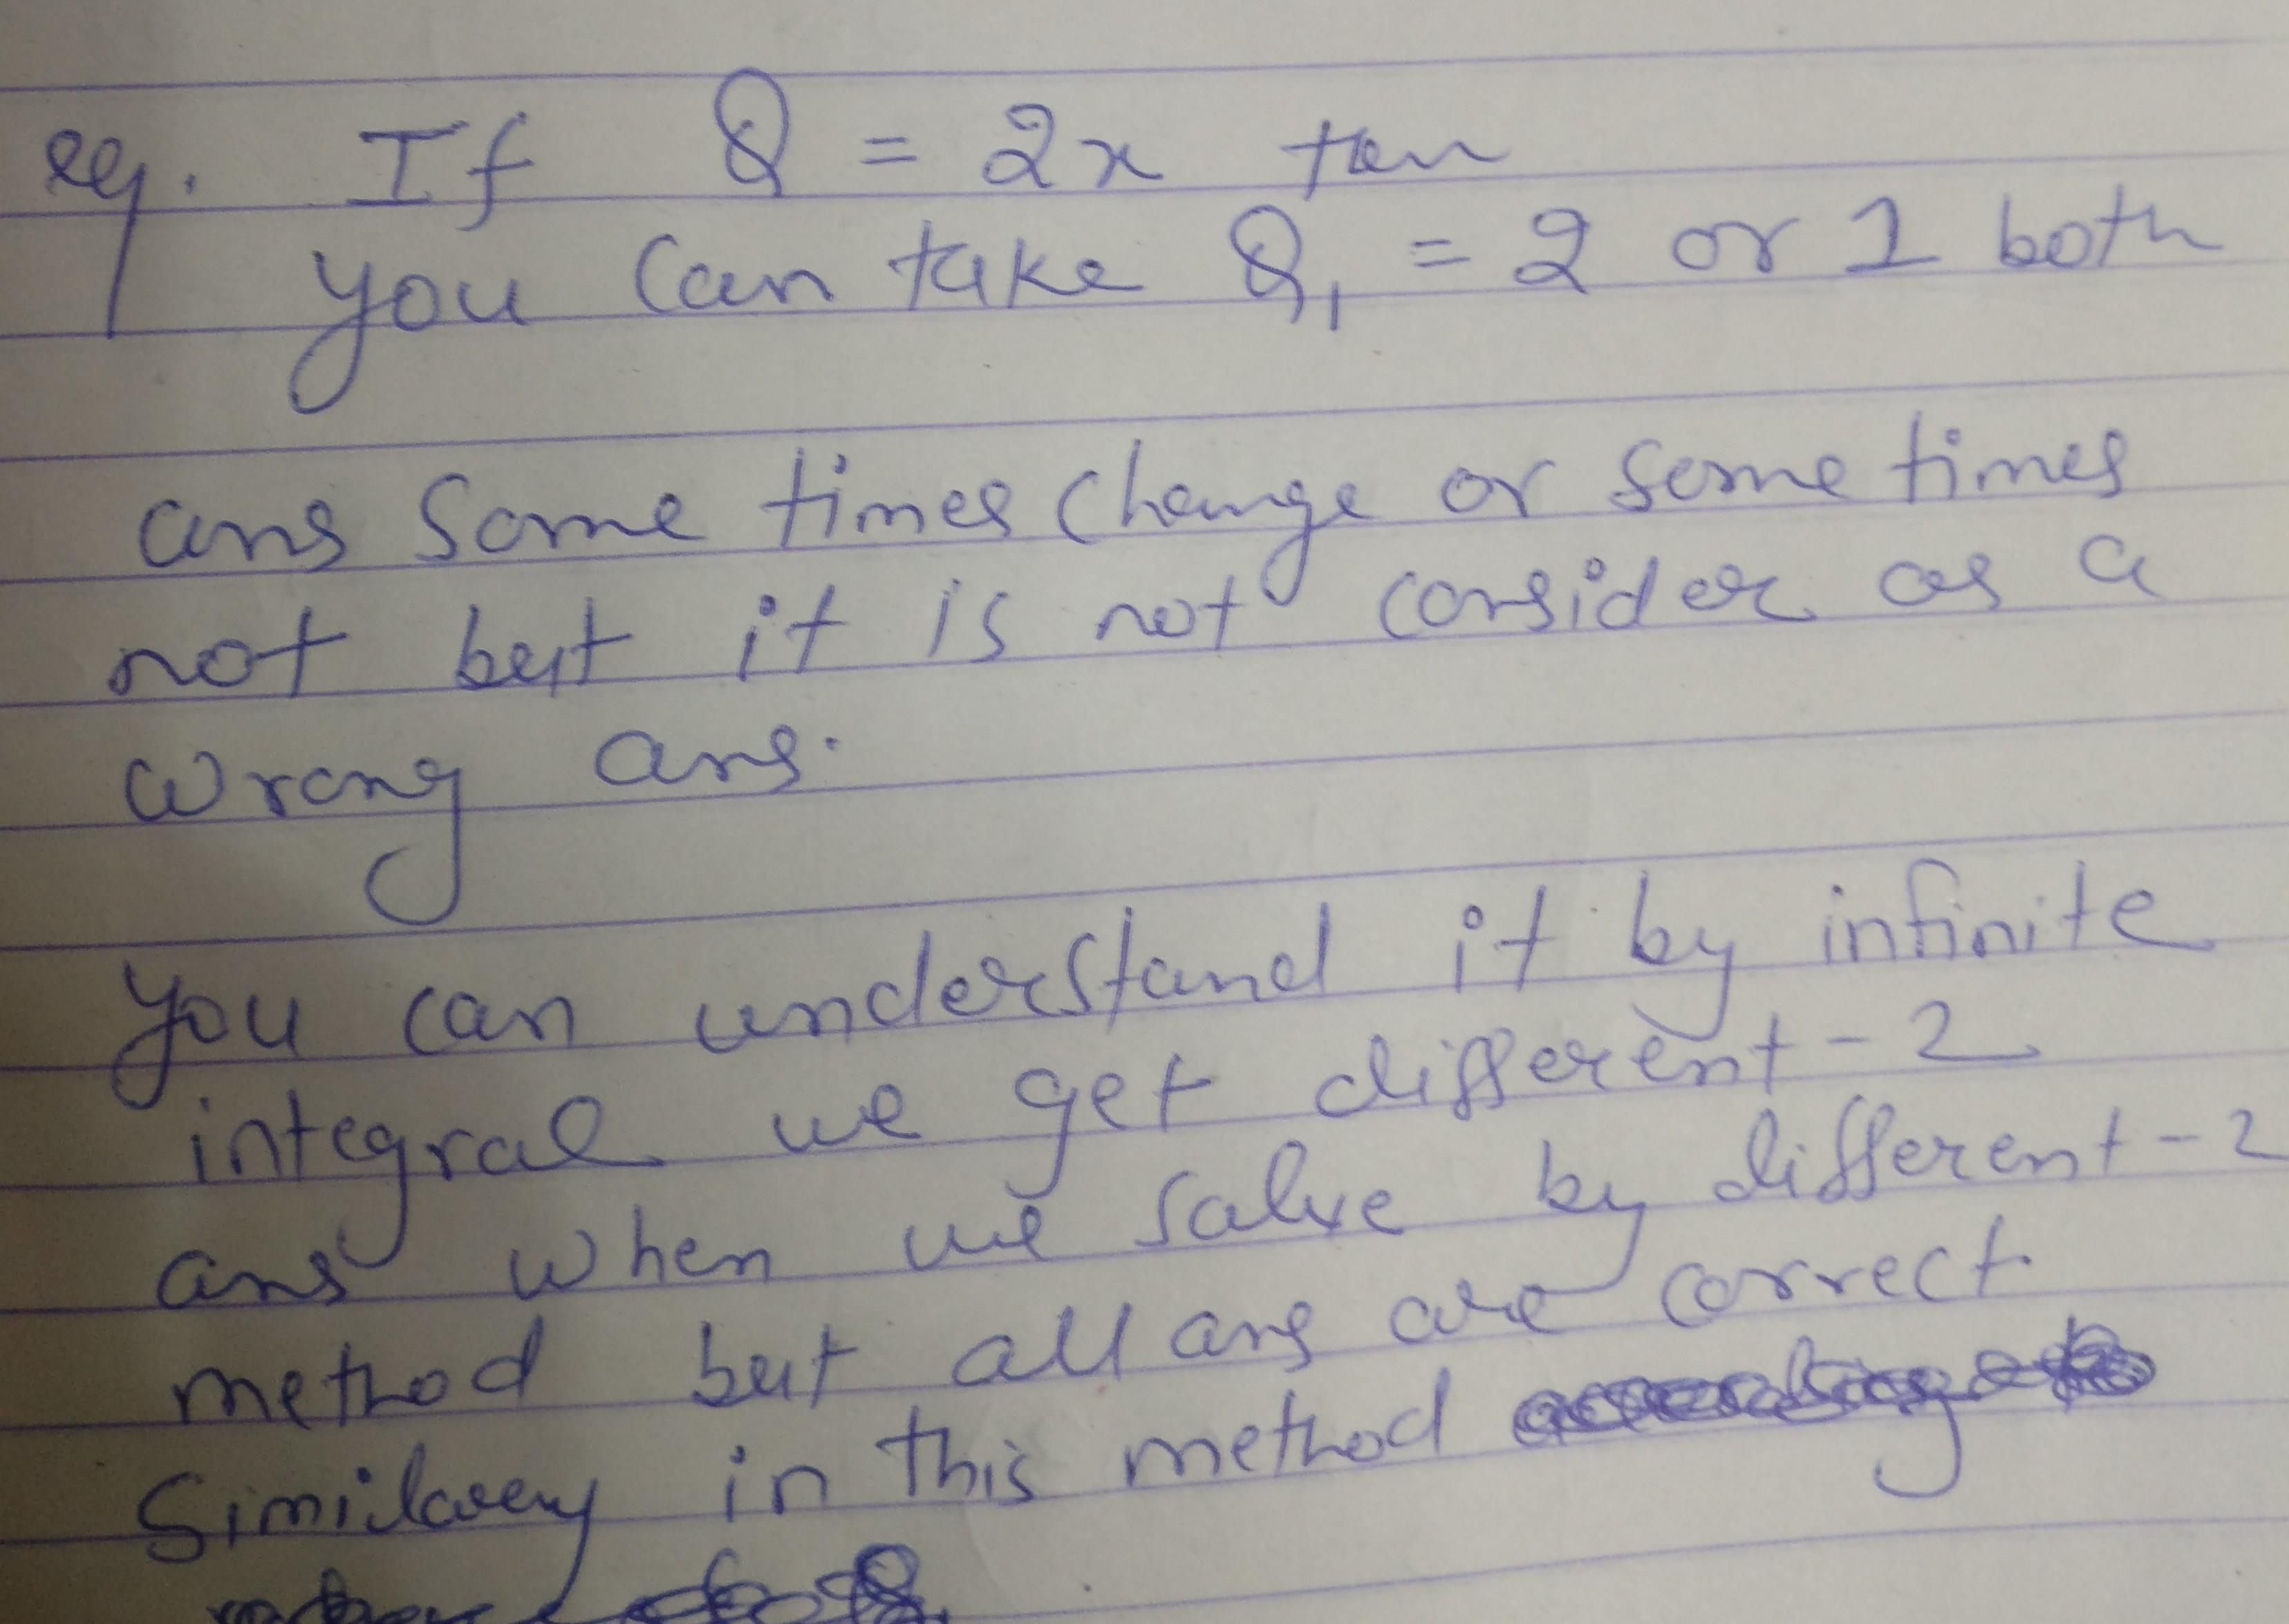 eg. If Q = 2x then
you can take Q₁ = 2 or 1 both
ans some times change or some times
not but it is not consider as a
wrong ans.
you can understand it by infinite
integral we get different-2
ans when we solve by different-2
method but all ans are correct
Similarly in this method